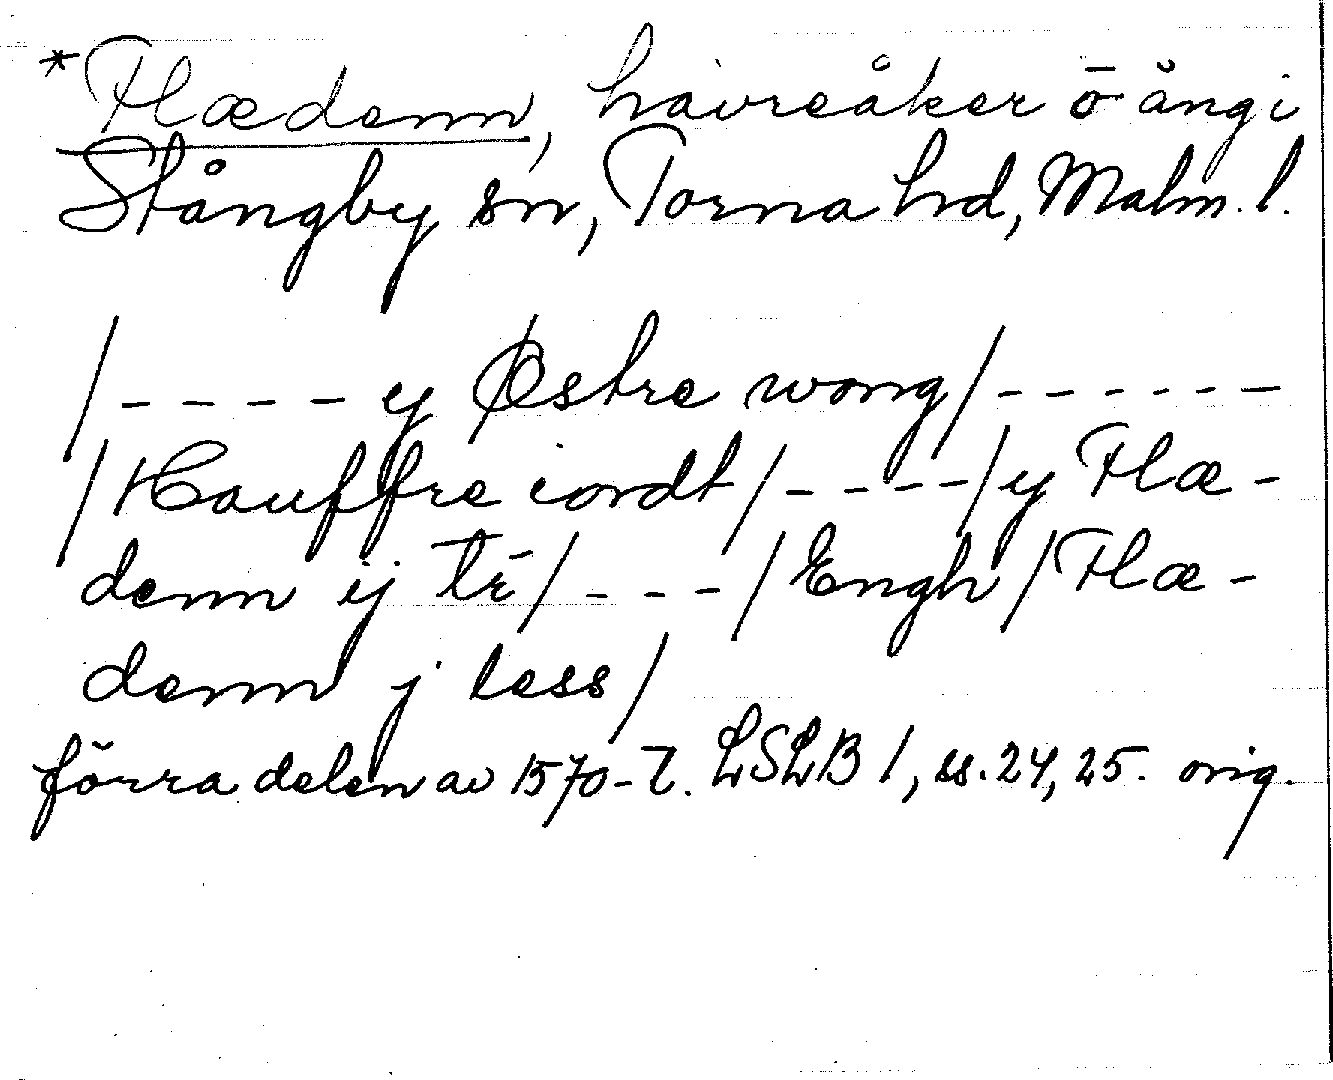 *Flædenn, havreåker o äng i
Stångby sn, Torna hd, Malm. l.
/ - - - - y Østre wong/ - - - - - -
/Hauffre iordt/ - - - -/y Flæ-
denn ij tr̄/ - - -/Engh/Flæ-
denn j less/
förra delen av 1570-t. LSLB 1, ss. 24, 25. orig.